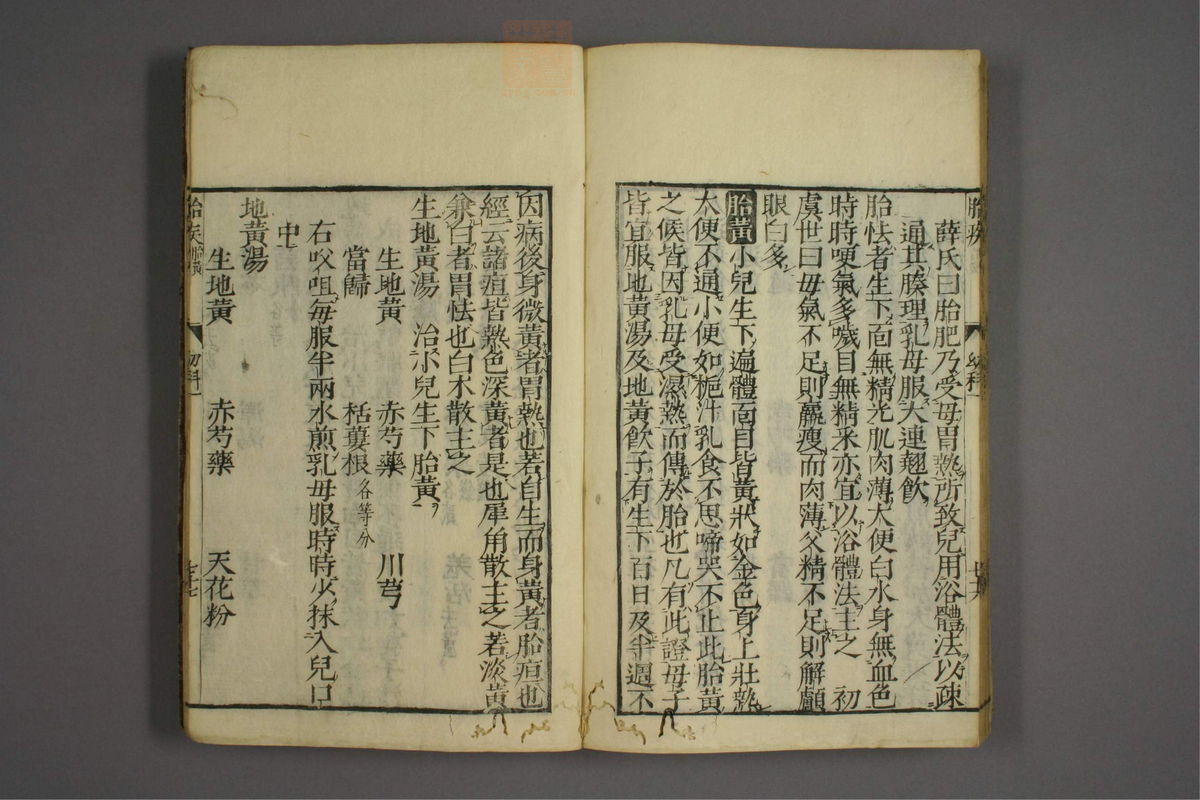 薛氏曰胎肥乃受母胃熱所致兒用浴體法以疎
通其腠理乳母服大連翹飲
胎怯者生下面無精光肌肉薄大便白水身無血色
時時哽氣多噦目無精釆亦宜以浴體法主之　初
虞世曰母氣不足則羸瘦而肉薄父精不足則解顱
眼白多
胎黃小兒生下遍體面目皆黃狀如金色身上壯熱
大便不通小便如梔汁乳食不思啼哭不止此胎黃
之候皆因乳母受濕熱而傳於胎也凡有此證母子
皆宜服地黃湯及地黃飮子有生下百日及半週不
胎疾
幼科一
七十六
因病後身微黃者胃熱也若自生而身黃者胎疸也
經云諸疸皆熱色深黃者是也犀角散主之若淡黃
兼白者胃怯也白朮散主之
生地黃湯　治小兒生下胎黃
生地黃　赤芍藥　川芎
當歸　栝蔞根各等分
右㕮咀每服半兩水煎乳母服時時少抹入兒口
中
地黃湯
生地黃　赤芍藥　天花粉
胎疾
幼科一
七十七